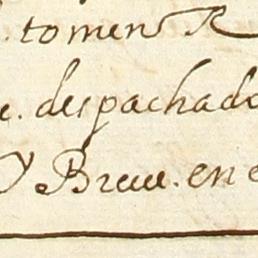 tomen R
e. despachado
Y Breue. en e